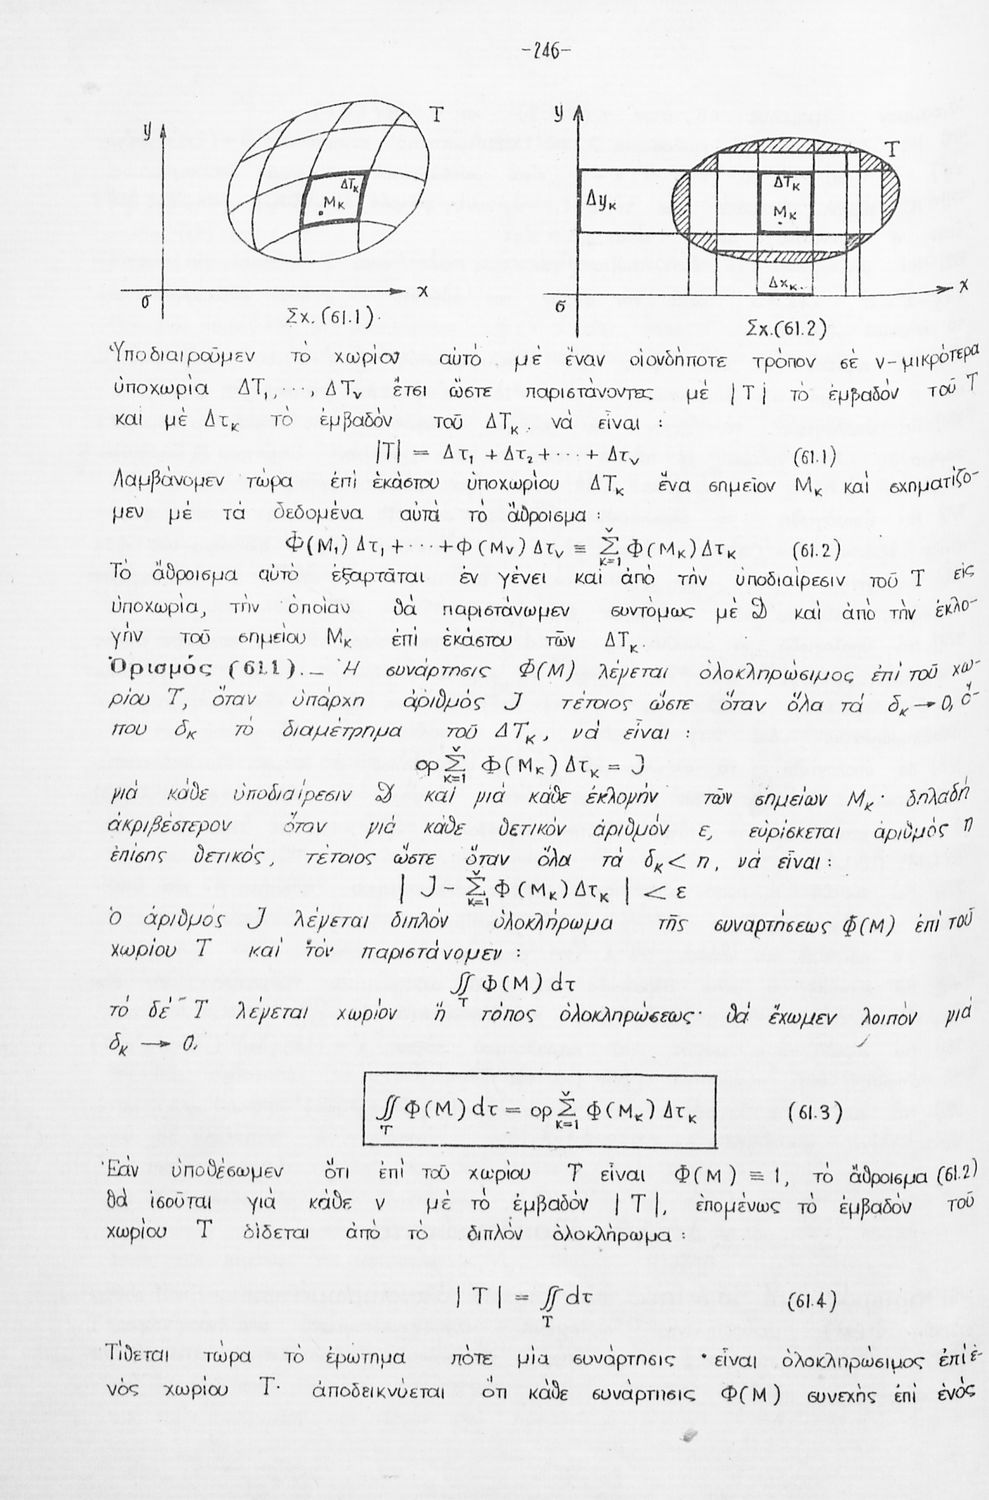 -246-
y T
ΔΤκ
Μκ
σ x
Σχ.(61.1).
y T
Δyκ ΔΤκ
Μκ
Δxκ.
σ x
Σχ.(61.2)
Ὑποδιαιροῦμεν τὸ χωρίον αὐτὸ μὲ ἕναν οἱονδήποτε τρόπον σὲ ν-μικρότερα
ὑποχωρία ΔΤ₁, ···, ΔΤν ἔτσι ὥστε παριστάνοντες μὲ |Τ| τὸ ἐμβαδὸν τοῦ Τ
καὶ μὲ Δτκ τὸ ἐμβαδὸν τοῦ ΔΤκ, νὰ εἶναι :
|Τ| = Δτ₁ + Δτ₂ + ··· + Δτν (61.1)
Λαμβάνομεν τώρα ἐπὶ ἑκάστου ὑποχωρίου ΔΤκ ἕνα σημεῖον Μκ καὶ σχηματίζο-
μεν μὲ τὰ δεδομένα αὐτὰ τὸ ἄθροισμα :
Φ(Μ₁) Δτ₁ + ··· + Φ(Μν) Δτν ≡ Σ Φ(Μκ) Δτκ (61.2)
ν
κ=1
Τὸ ἄθροισμα αὐτὸ ἐξαρτᾶται ἐν γένει καὶ ἀπὸ τὴν ὑποδιαίρεσιν τοῦ Τ εἰς
ὑποχωρία, τὴν ὁποίαν θὰ παριστάνωμεν συντόμως μὲ 𝒟 καὶ ἀπὸ τὴν ἐκλο-
γὴν τοῦ σημείου Μκ ἐπὶ ἑκάστου τῶν ΔΤκ.
Ὁρισμός (61.1)._ Ἡ συνάρτησις Φ(Μ) λέγεται ὁλοκληρώσιμος ἐπὶ τοῦ χω-
ρίου Τ, ὅταν ὑπάρχη ἀριθμὸς J τέτοιος ὥστε ὅταν ὅλα τὰ δκ → 0, ὅ-
που δκ τὸ διαμέτρημα τοῦ ΔΤκ, νὰ εἶναι :
ορ Σ Φ(Μκ) Δτκ = J
ν
κ=1
γιὰ κάθε ὑποδιαίρεσιν 𝒟 καὶ γιὰ κάθε ἐκλογὴν τῶν σημείων Μκ· δηλαδὴ
ἀκριβέστερον ὅταν γιὰ κάθε θετικὸν ἀριθμὸν ε, εὑρίσκεται ἀριθμὸς η
ἐπίσης θετικός, τέτοιος ὥστε ὅταν ὅλα τὰ δκ < η, νὰ εἶναι :
| J - Σ Φ(Μκ) Δτκ | < ε
ν
κ=1
ὁ ἀριθμὸς J λέγεται διπλὸν ὁλοκλήρωμα τῆς συναρτήσεως Φ(Μ) ἐπὶ τοῦ
χωρίου Τ καὶ τὸν παριστάνομεν :
∬ Φ(Μ) dτ
Τ
τὸ δὲ Τ λέγεται χωρίον ἢ τόπος ὁλοκληρώσεως· θὰ ἔχωμεν λοιπὸν γιὰ
δκ → 0.
∬ Φ(Μ) dτ = ορ Σ Φ(Μκ) Δτκ (61.3)
Τ
ν
κ=1
Ἐὰν ὑποθέσωμεν ὅτι ἐπὶ τοῦ χωρίου Τ εἶναι Φ(Μ) ≡ 1, τὸ ἄθροισμα (61.2)
θὰ ἰσοῦται γιὰ κάθε ν μὲ τὸ ἐμβαδὸν |Τ|, ἑπομένως τὸ ἐμβαδὸν τοῦ
χωρίου Τ δίδεται ἀπὸ τὸ διπλὸν ὁλοκλήρωμα :
|Τ| = ∬ dτ (61.4)
Τ
Τίθεται τώρα τὸ ἐρώτημα πότε μία συνάρτησις εἶναι ὁλοκληρώσιμος ἐπὶ ἑ-
νὸς χωρίου Τ· ἀποδεικνύεται ὅτι κάθε συνάρτησις Φ(Μ) συνεχὴς ἐπὶ ἑνὸς